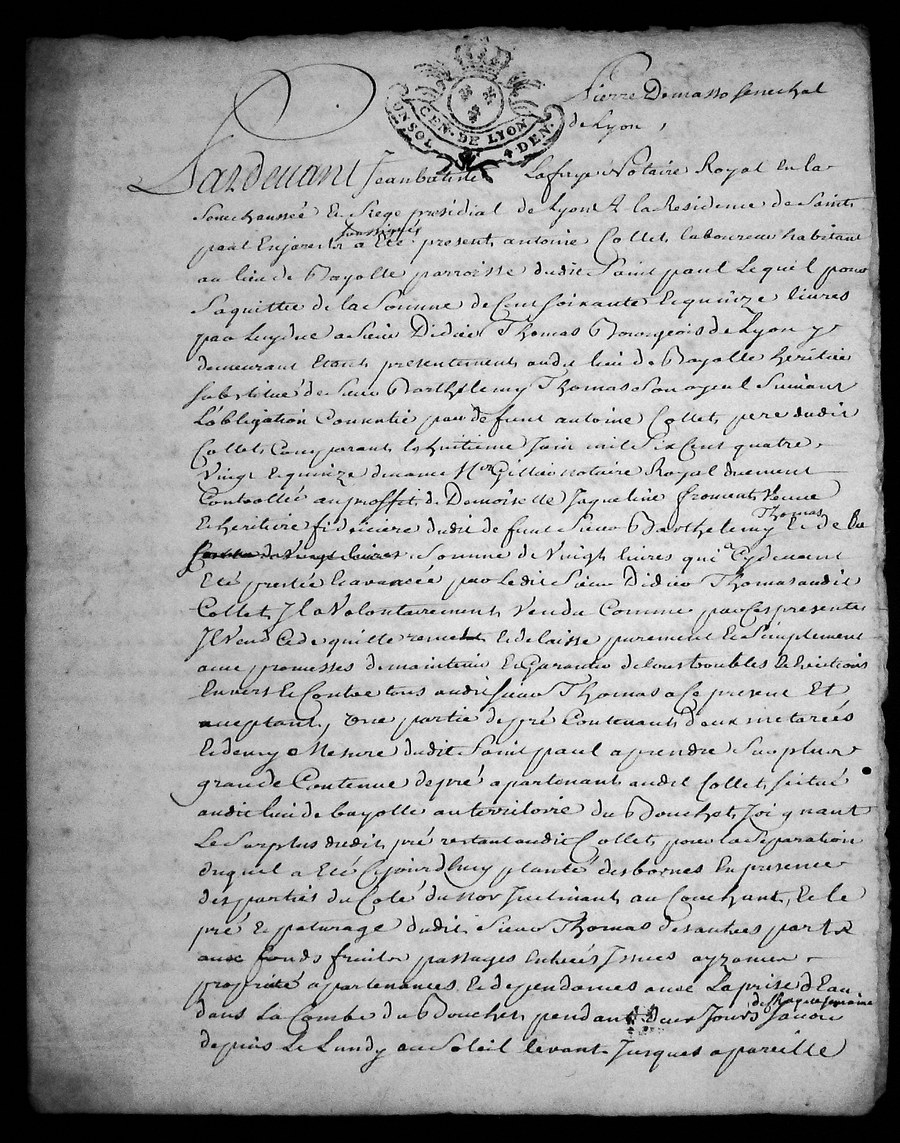 GEN. DE LYON
UN SOL 4 DEN.
Pierre Demasso senechal
de Lyon,
Pardevant Jean batiste Lafaye Notaire Royal en la
Senechaussée Et Siege presidial de Lyon A la Residence de Saint
paul Enjarest soussigné a Eté present antoine Collet laboureur habitant
au lieu de Bayolle parroisse dudit Saint paul Lequel pour
Saquitter de la Somme de Cent soixante Et quinze livres
par Luy due a Sieur Didier Thomas Bourgeois de Lyon y
demeurant Etant presentement audit lieu de Bayolle heritier
substitué de Sieur Barthelemy Thomas Son ayeul Suivant
Lobligation Consentie par deffunt antoine Collet pere dudit
Collet Comparant le huitieme Juin mil Six Cent quatre
Vingt Et quinze devant Me Gillier notaire Royal duement
Controllée au proffit de Demoiselle Jaqueline froment Veuve
Et heritiere fiduciere dudit deffunt Sieur Barthelemy Thomas Et de la
Somme de Vingt livres qui a Cydevant
Eté pretée Et avancée par Ledit Sieur Didier Thomas audit
Collet, Il a Volontairement Vendu Comme par Ces presentes
Il Vend Cede quitte remet Et delaisse purement Et Simplement
avec promesses de maintenir Et Garantir de tous troubles Et evictions
Envers Et Contre tous audit Sieur Thomas a Ce present Et
acceptant, Une partie de pré Contenant deux meterées
Et demy Mesure dudit Saint paul a prendre Sur plus
grande Contenue de pré apartenant audit Collet, situé
audit lieu de bayolle au territoire du Bouchet Joignant
Le Surplus dudit pré restant audit Collet pour la Separation
duquel a Eté Cejourdhuy planté des bornes En presence
des parties du Coté du nor Inclinant au Couchant, Et le
pré Et paturage dudit Sieur Thomas des autres parts
avec fonds fruits passages Entrées Issues ayzances
proprieté apartenances Et dependances avec La prise d'Eau
dans La Combe du Bouchet pendant deux Jours de Chaque semaine savoir
depuis Le Lundy au Soleil levant Jusques a pareille